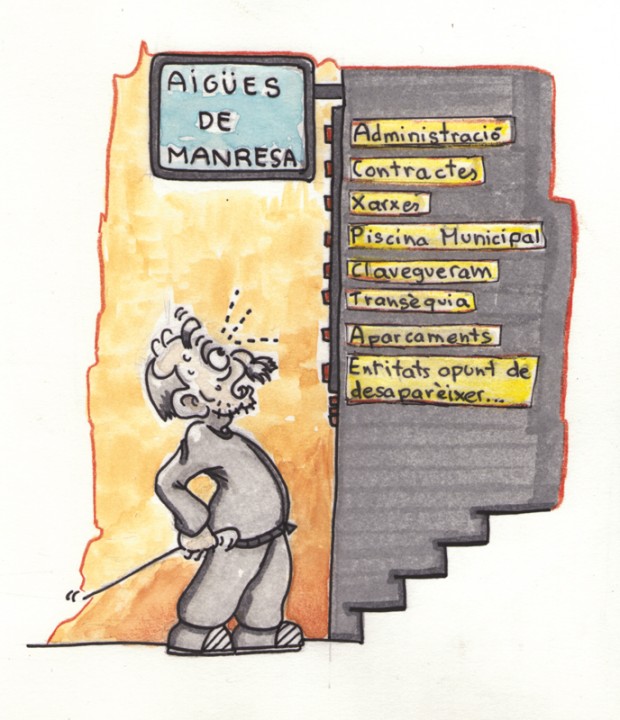 AIGÜES
DE
MANRESA
Administració
Contractes
Xarxes
Piscina Municipal
Clavegueram
Transèquia
Aparcaments
Entitats apunt de
desaparèixer...